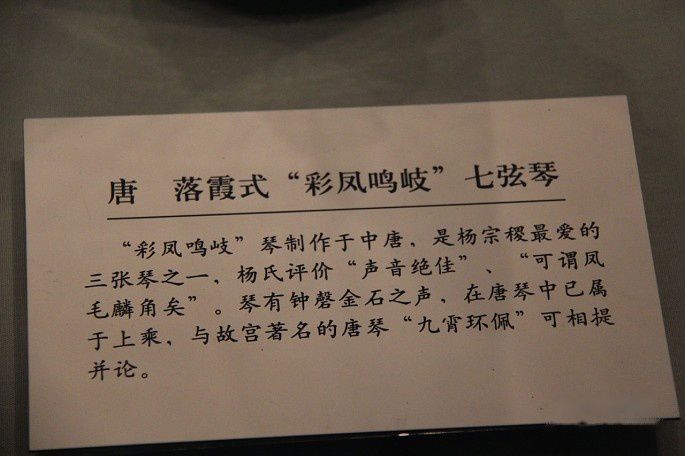 唐　落霞式“彩凤鸣岐”七弦琴
“彩凤鸣岐”琴制作于中唐，是杨宗稷最爱的
三张琴之一，杨氏评价“声音绝佳”、“可谓凤
毛麟角矣”。琴有钟磬金石之声，在唐琴中已属
于上乘，与故宫著名的唐琴“九霄环佩”可相提
并论。